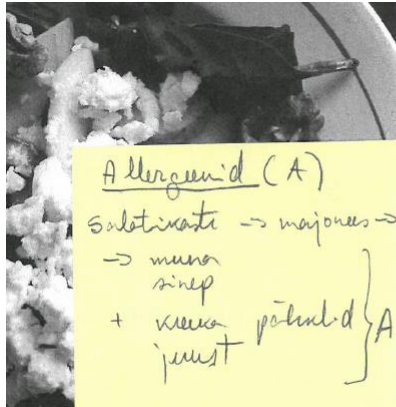 Allergeenid (A)
Salatikaste → majonees →
→ muna
sinep
+ kreeka pähklid } A
juust